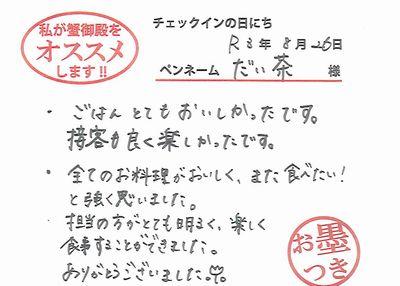 私が蟹御殿を
オススメ
します!!
チェックインの日にち
R3年 8月26日
ペンネーム だい茶 様
・ごはんとてもおいしかったです。
接客も良く楽しかったです。
・全てのお料理がおいしく、また食べたい!
と強く思いました。
・担当の方がとても明るく、楽しく
食事することができました。
ありがとうございました。
お墨
つき